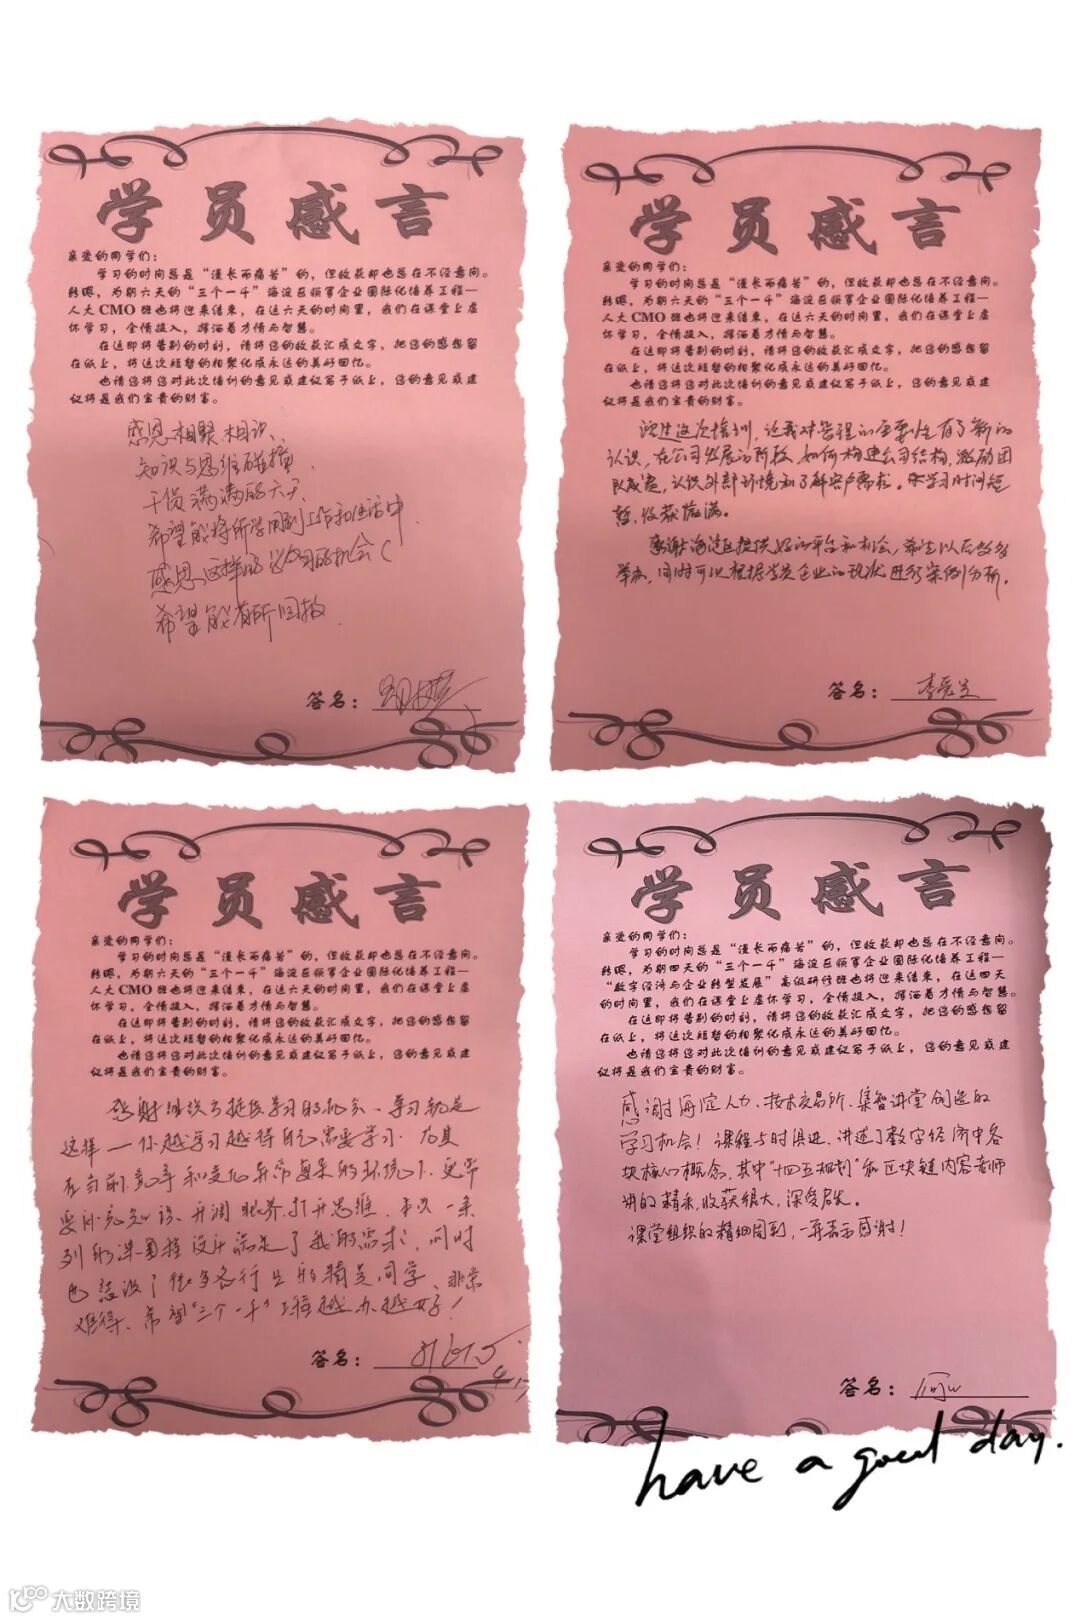 学员感言
亲爱的同学们：
学习的时间总是“漫长而痛苦”的，但收获却也总在不经意间。
转眼，为期六天的“三个一千”海淀区领军企业国际化培养工程—
人大CMO班也将迎来结束，在这六天的时间里，我们在课堂上虚
怀学习，全情投入，挥洒着才情与智慧。
在这即将告别的时刻，请将您的收获汇成文字，把您的感想留
在纸上，将这次短暂的相聚化成永远的美好回忆。
也请您将您对此次培训的意见或建议写于纸上，您的意见或建
议将是我们宝贵的财富。
感恩相聚相识、
知识与思维碰撞、
干货满满的六天、
希望能将所学用到工作和生活中
感恩这样的学习的机会（
希望能有所回报
签名：
学员感言
亲爱的同学们：
学习的时间总是“漫长而痛苦”的，但收获却也总在不经意间。
转眼，为期六天的“三个一千”海淀区领军企业国际化培养工程—
人大CMO班也将迎来结束，在这六天的时间里，我们在课堂上虚
怀学习，全情投入，挥洒着才情与智慧。
在这即将告别的时刻，请将您的收获汇成文字，把您的感想留
在纸上，将这次短暂的相聚化成永远的美好回忆。
也请您将您对此次培训的意见或建议写于纸上，您的意见或建
议将是我们宝贵的财富。
通过这次培训，让我对管理的重要性有了新的
认识，在公司发展的阶段，如何构建公司结构，激励团
队成员，认识外部环境和了解客户需求。学习时间短
暂，收获满满。
感谢海淀区提供好的平台和机会，希望以后多多
举办，同时可以根据学员企业的现状进行案例分析。
签名：
学员感言
亲爱的同学们：
学习的时间总是“漫长而痛苦”的，但收获却也总在不经意间。
转眼，为期六天的“三个一千”海淀区领军企业国际化培养工程—
人大CMO班也将迎来结束，在这六天的时间里，我们在课堂上虚
怀学习，全情投入，挥洒着才情与智慧。
在这即将告别的时刻，请将您的收获汇成文字，把您的感想留
在纸上，将这次短暂的相聚化成永远的美好回忆。
也请您将您对此次培训的意见或建议写于纸上，您的意见或建
议将是我们宝贵的财富。
感谢组织方提供学习的机会、学习就是
这样——你越学习越得自己需要学习、尤其
在当前竞争和变化异常复杂的环境下、更需
要补充知识、开阔眼界、打开思维、本次一系
列的课程设计满足了我的需求，同时
也结识了很多各行业的精英同学、非常
难得、希望“三个一千”工程越办越好！
签名：
学员感言
亲爱的同学们：
学习的时间总是“漫长而痛苦”的，但收获却也总在不经意间。
转眼，为期四天的“三个一千”海淀区领军企业国际化培养工程—
“数字经济与企业转型发展”高级研修班也将迎来结束，在这四天
的时间里，我们在课堂上虚怀学习，全情投入，挥洒着才情与智慧。
在这即将告别的时刻，请将您的收获汇成文字，把您的感想留
在纸上，将这次短暂的相聚化成永远的美好回忆。
也请您将您对此次培训的意见或建议写于纸上，您的意见或建
议将是我们宝贵的财富。
感谢海淀人力、技术交易所、集智讲堂创造的
学习机会！课程与时俱进、讲述了数字经济中各
块核心概念，其中“十四五规划”和区块链内容老师
讲的精采，收获很大，深受启发。
课堂组织的精细周到，一并表示感谢！
签名：
have a good day.
大数跨境